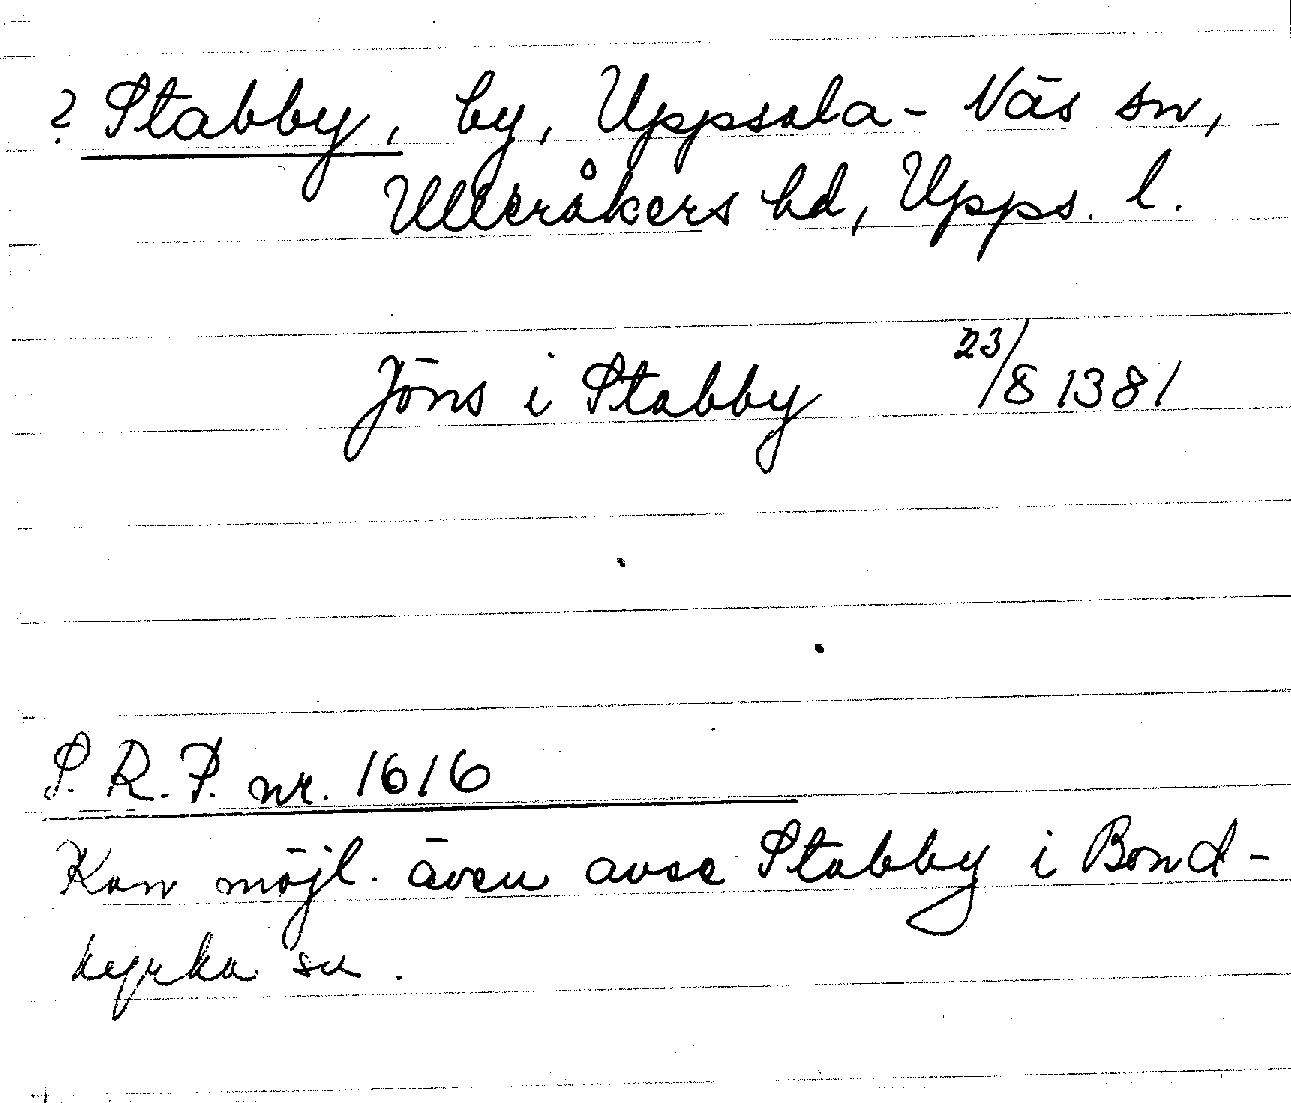 ? Stabby, by, Uppsala-Näs sn,
Ulleråkers hd, Upps. l.
Jöns i Stabby 23/8 1381
S. R. P. nr. 1616
Kan möjl. även avse Stabby i Bond-
kyrka sn.